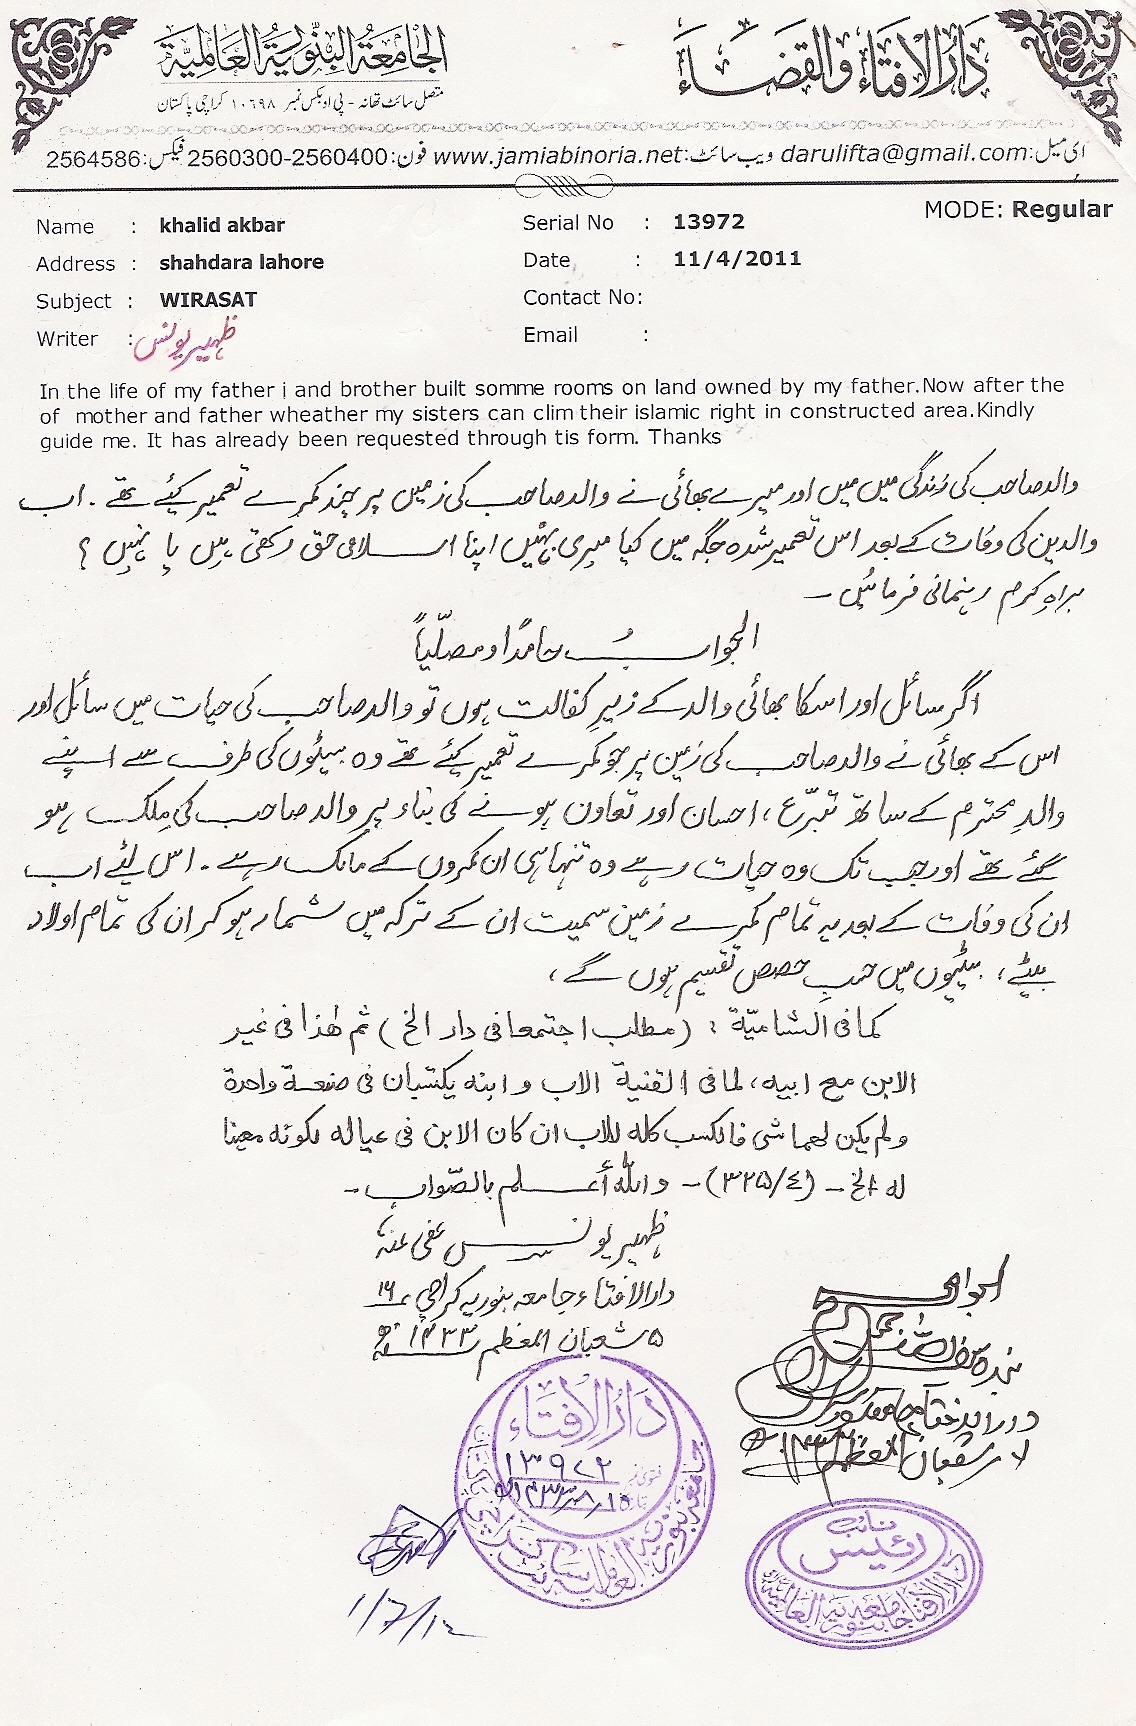 الجامعۃ البنوریۃ العالمیۃ
دار الافتاء والقضاء
متصل سائٹ تھانہ - پی او بکس نمبر ۱۰۶۹۸ کراچی پاکستان
ای میل: darulifta@gmail.com ویب سائٹ: www.jamiabinoria.net فون: 2560300-2560400 فیکس: 2564586
MODE: Regular
Name : khalid akbar
Serial No : 13972
Address : shahdara lahore
Date : 11/4/2011
Subject : WIRASAT
Contact No:
Writer : ظہیر یونس
Email :
In the life of my father i and brother built somme rooms on land owned by my father.Now after the
of mother and father wheather my sisters can clim their islamic right in constructed area.Kindly
guide me. It has already been requested through tis form. Thanks
والد صاحب کی زندگی میں میں اور میرے بھائی نے والد صاحب کی زمین پر چند کمرے تعمیر کیئے تھے۔ اب
والدین کی وفات کے بعد اس تعمیر شدہ جگہ میں کیا میری بہنیں اپنا اسلامی حق رکھتی ہیں یا نہیں؟
براہِ کرم رہنمائی فرمائیں۔
الجواب حامدًا ومصلّیاً
اگر سائل اور اسکا بھائی والد کے زیرِ کفالت ہوں تو والد صاحب کی حیات میں سائل اور
اس کے بھائی نے والد صاحب کی زمین پر جو کمرے تعمیر کیئے تھے وہ بیٹوں کی طرف سے اپنے
والدِ محترم کے ساتھ تبرّع، احسان اور تعاون ہونے کی بناء پر والد صاحب کی مِلک ہو
گئے تھے اور جب تک وہ حیات رہے وہ تنہا ہی ان کمروں کے مالک رہے۔ اس لیئے اب
ان کی وفات کے بعد یہ تمام کمرے زمین سمیت ان کے ترکہ میں شمار ہو کر ان کی تمام اولاد
بیٹے، بیٹیوں میں حسبِ حصص تقسیم ہوں گے،
کما فی الشامیّة: (مطلب اجتمعا فی دار الخ) ثم هذا فی غیر
الابن مع ابیه، لما فی القنیة الاب و ابنه یکتسبان فی صنعة واحدة
ولم یکن لهما شی فالکسب کله للاب ان کان الابن فی عیاله لکونه معینا
له الخ ـ (۳۲۵/٤) ـ والله أعلم بالصّواب ـ
ظہیر یونس عفی عنہ
دارالافتاء جامعہ بنوریہ کراچی ۱۶
۵ شعبان المعظم ۱۴۳۳ھ
الجواب
شعبان المعظم ۱۴۳۳ھ
دار الافتاء
۱۳۹۷۲
۱۴۳۳/۸/۱۵ھ
نائب
رئیس
دار الافتاء جامعہ بنوریہ العالمیہ
۱/۷/۱۲